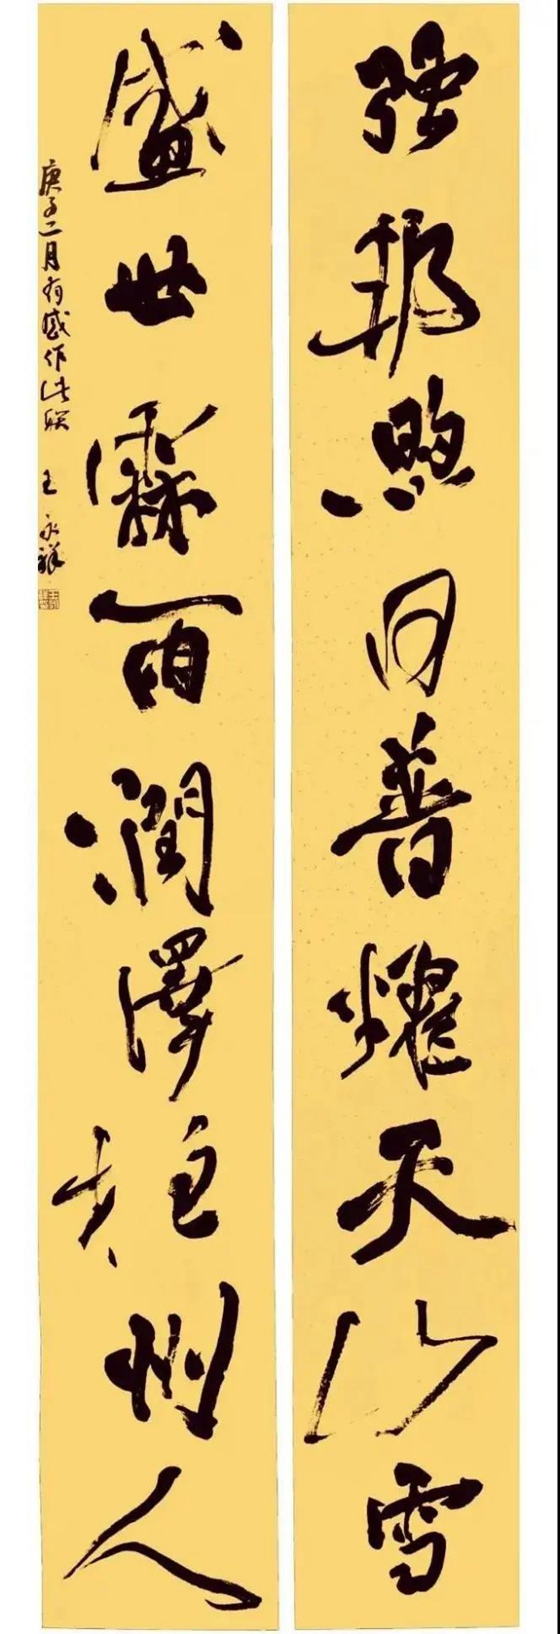 强邦煦日普耀天山雪
盛世霖雨润泽桓州人
庚子二月有感作此联 王永祥